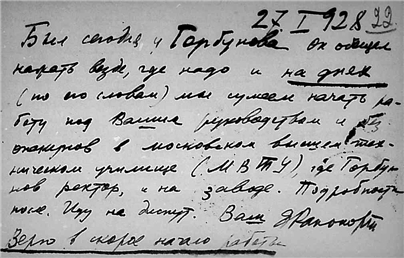 27 I 928 22
Был сегодня у Горбунова он обещал
нажать везде, где надо и на днях
(по его словам) мы сумеем начать ра-
боту под Вашим руководством и
в московском высшем тех-
ническом училище (МВТУ) где Горбу-
нов ректор, и на заводе. Подробности
после. Иду на диспут. Ваш ЯРапопорт
Верю в скорое начало работы